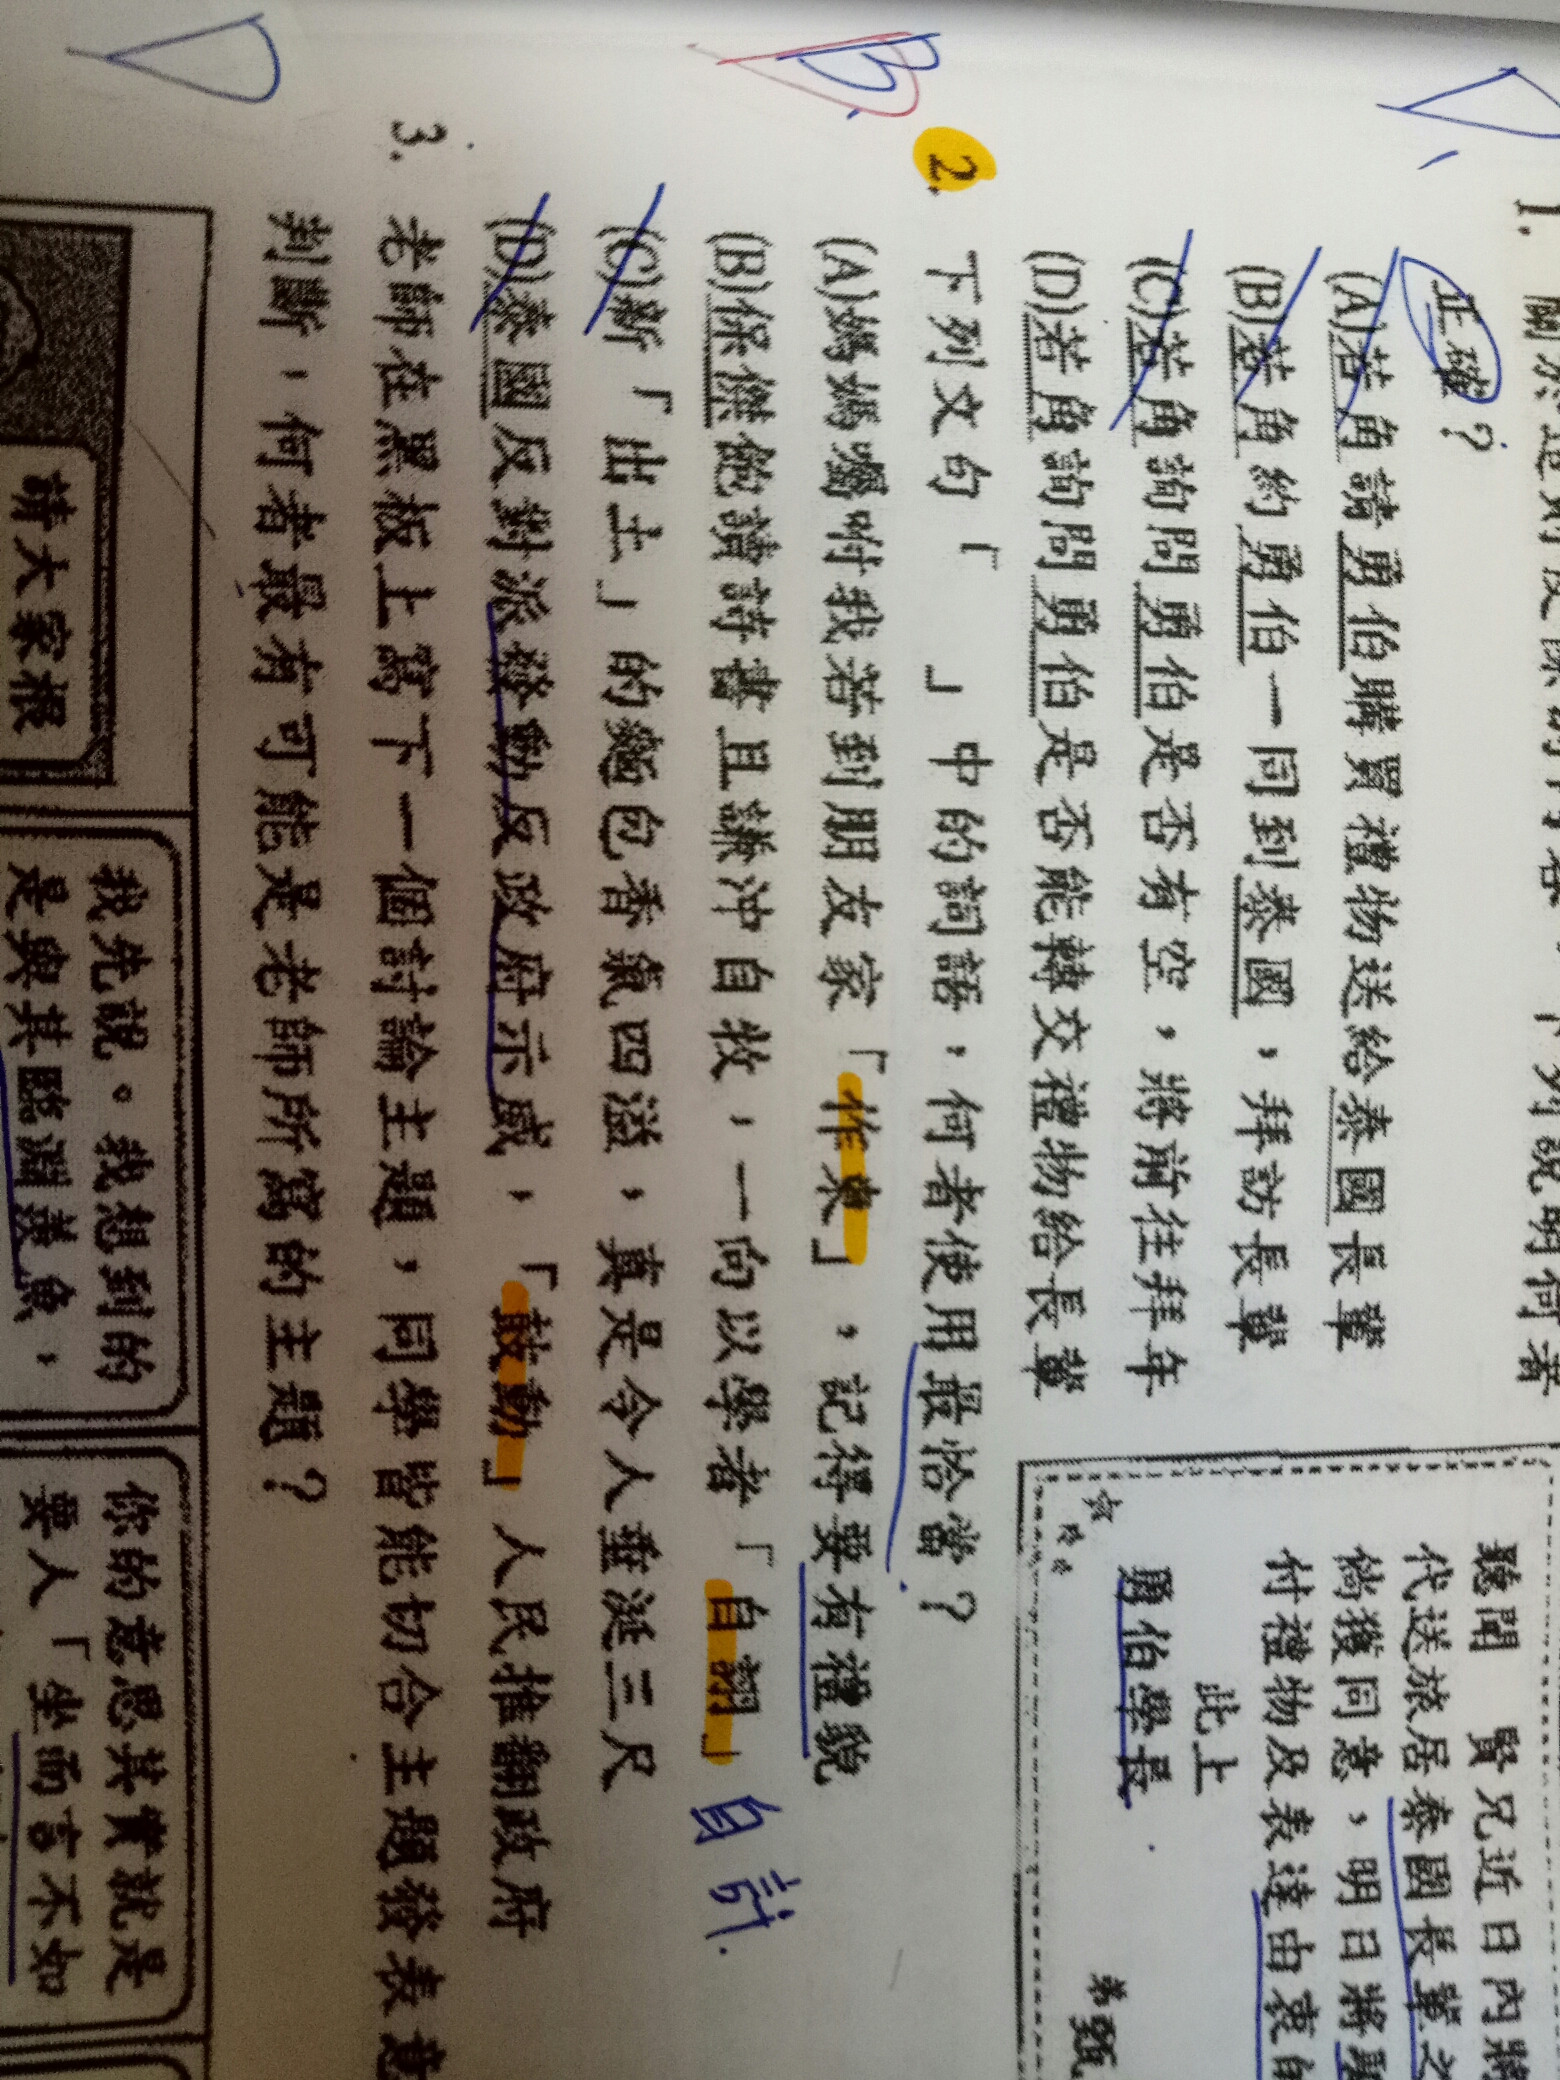 1.
下列說明何者
正確？
(A)若角請勇伯購買禮物送給泰國長輩
(B)若角約勇伯一同到泰國，拜訪長輩
(C)若角詢問勇伯是否有空，將前往拜年
(D)若角詢問勇伯是否能轉交禮物給長輩
聽聞　賢兄近日內將
代送旅居泰國長輩之
倘獲同意，明日將
付禮物及表達由衷的
此上
勇伯學長
弟 甄
B
2. 下列文句「　　」中的詞語，何者使用最恰當？
(A)媽媽囑咐我若到朋友家「作東」，記得要有禮貌
(B)保傑飽讀詩書且謙沖自牧，一向以學者「自詡」 自許
(C)新「出土」的麵包香氣四溢，真是令人垂涎三尺
(D)泰國反對派發動反政府示威，「鼓動」人民推翻政府
D
3. 老師在黑板上寫下一個討論主題，同學皆能切合主題發表意
判斷，何者最有可能是老師所寫的主題？
請大家根
我先說。我想到的
是與其臨淵羨魚，
你的意思其實就是
要人「坐而言不如